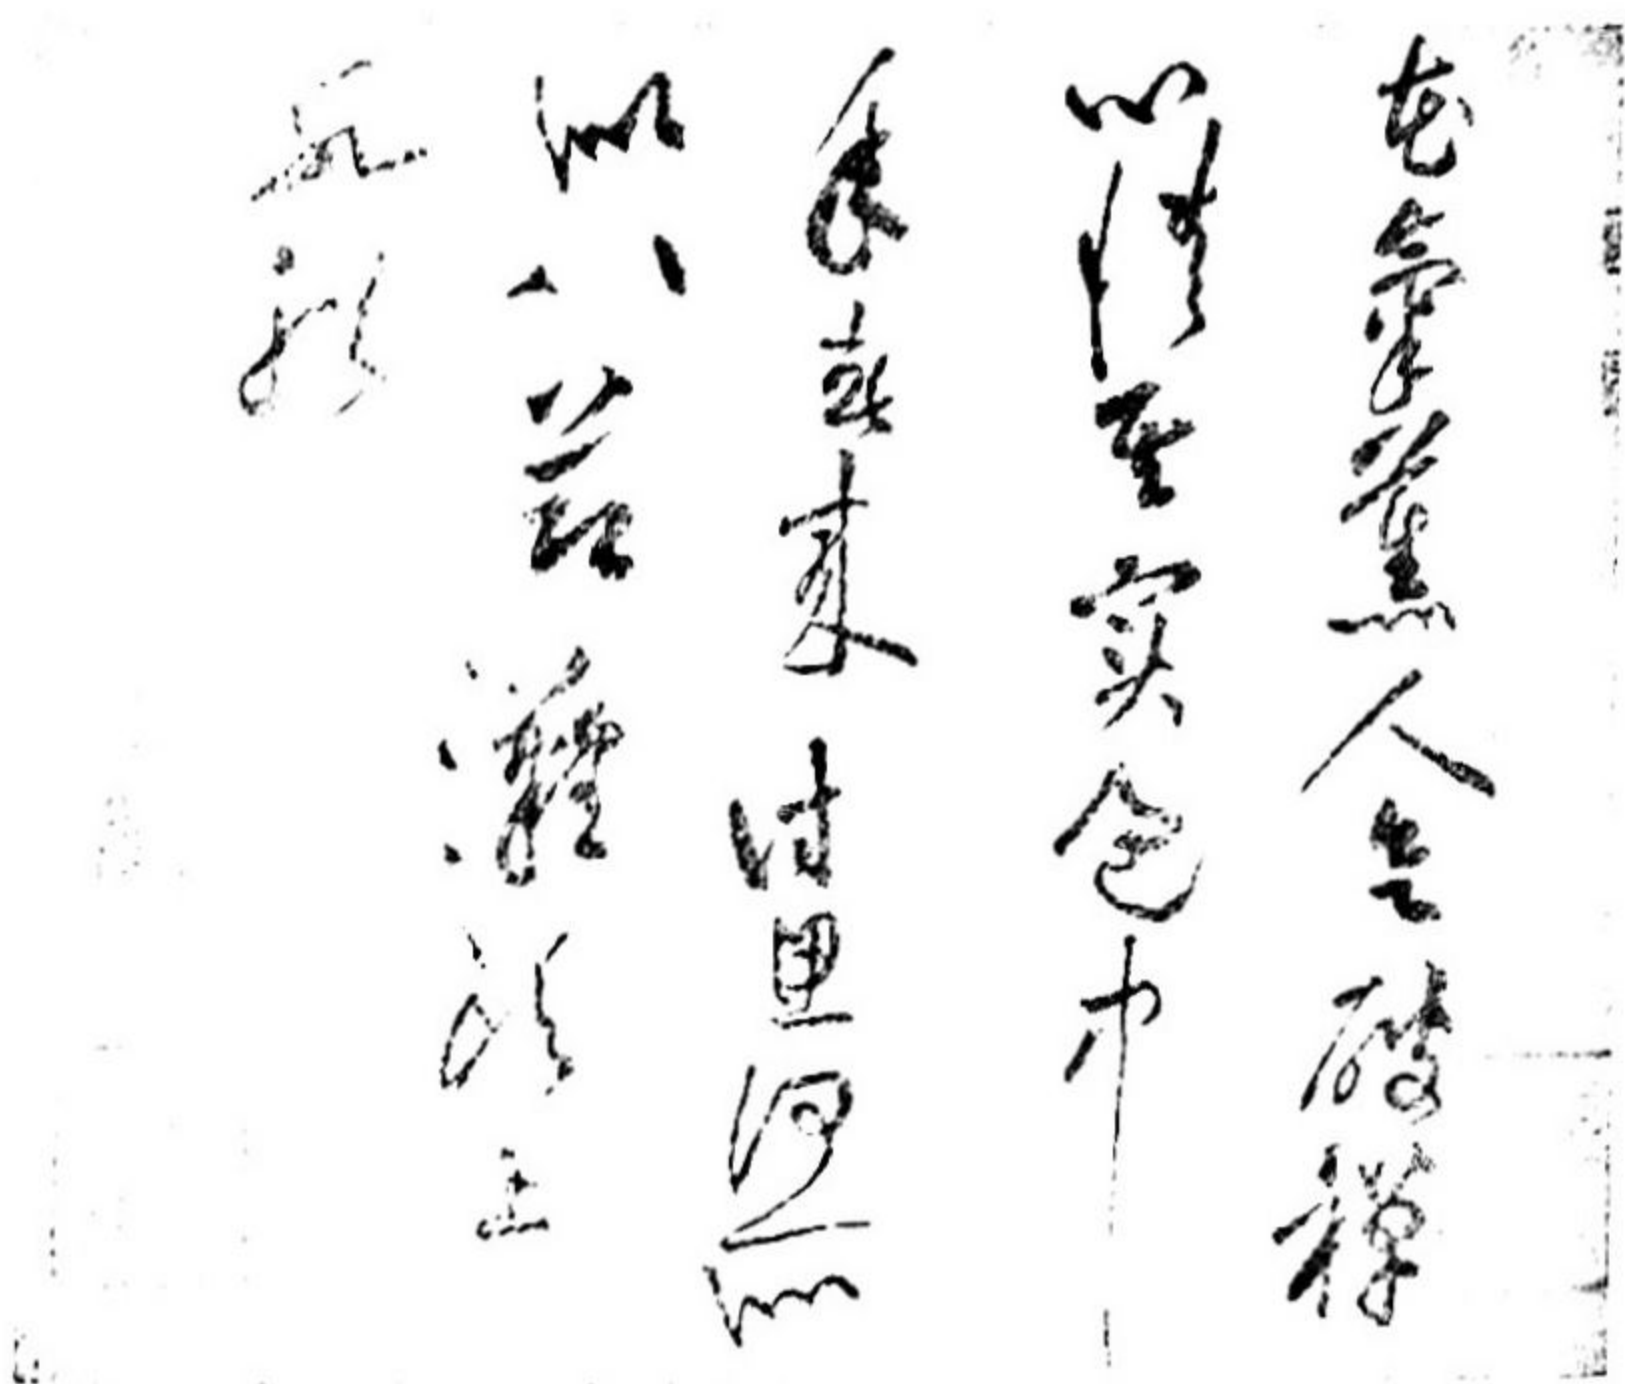 花氣薰人欲破禪
心情其實過中
年春來詩思何
所似八節灘頭上
水船